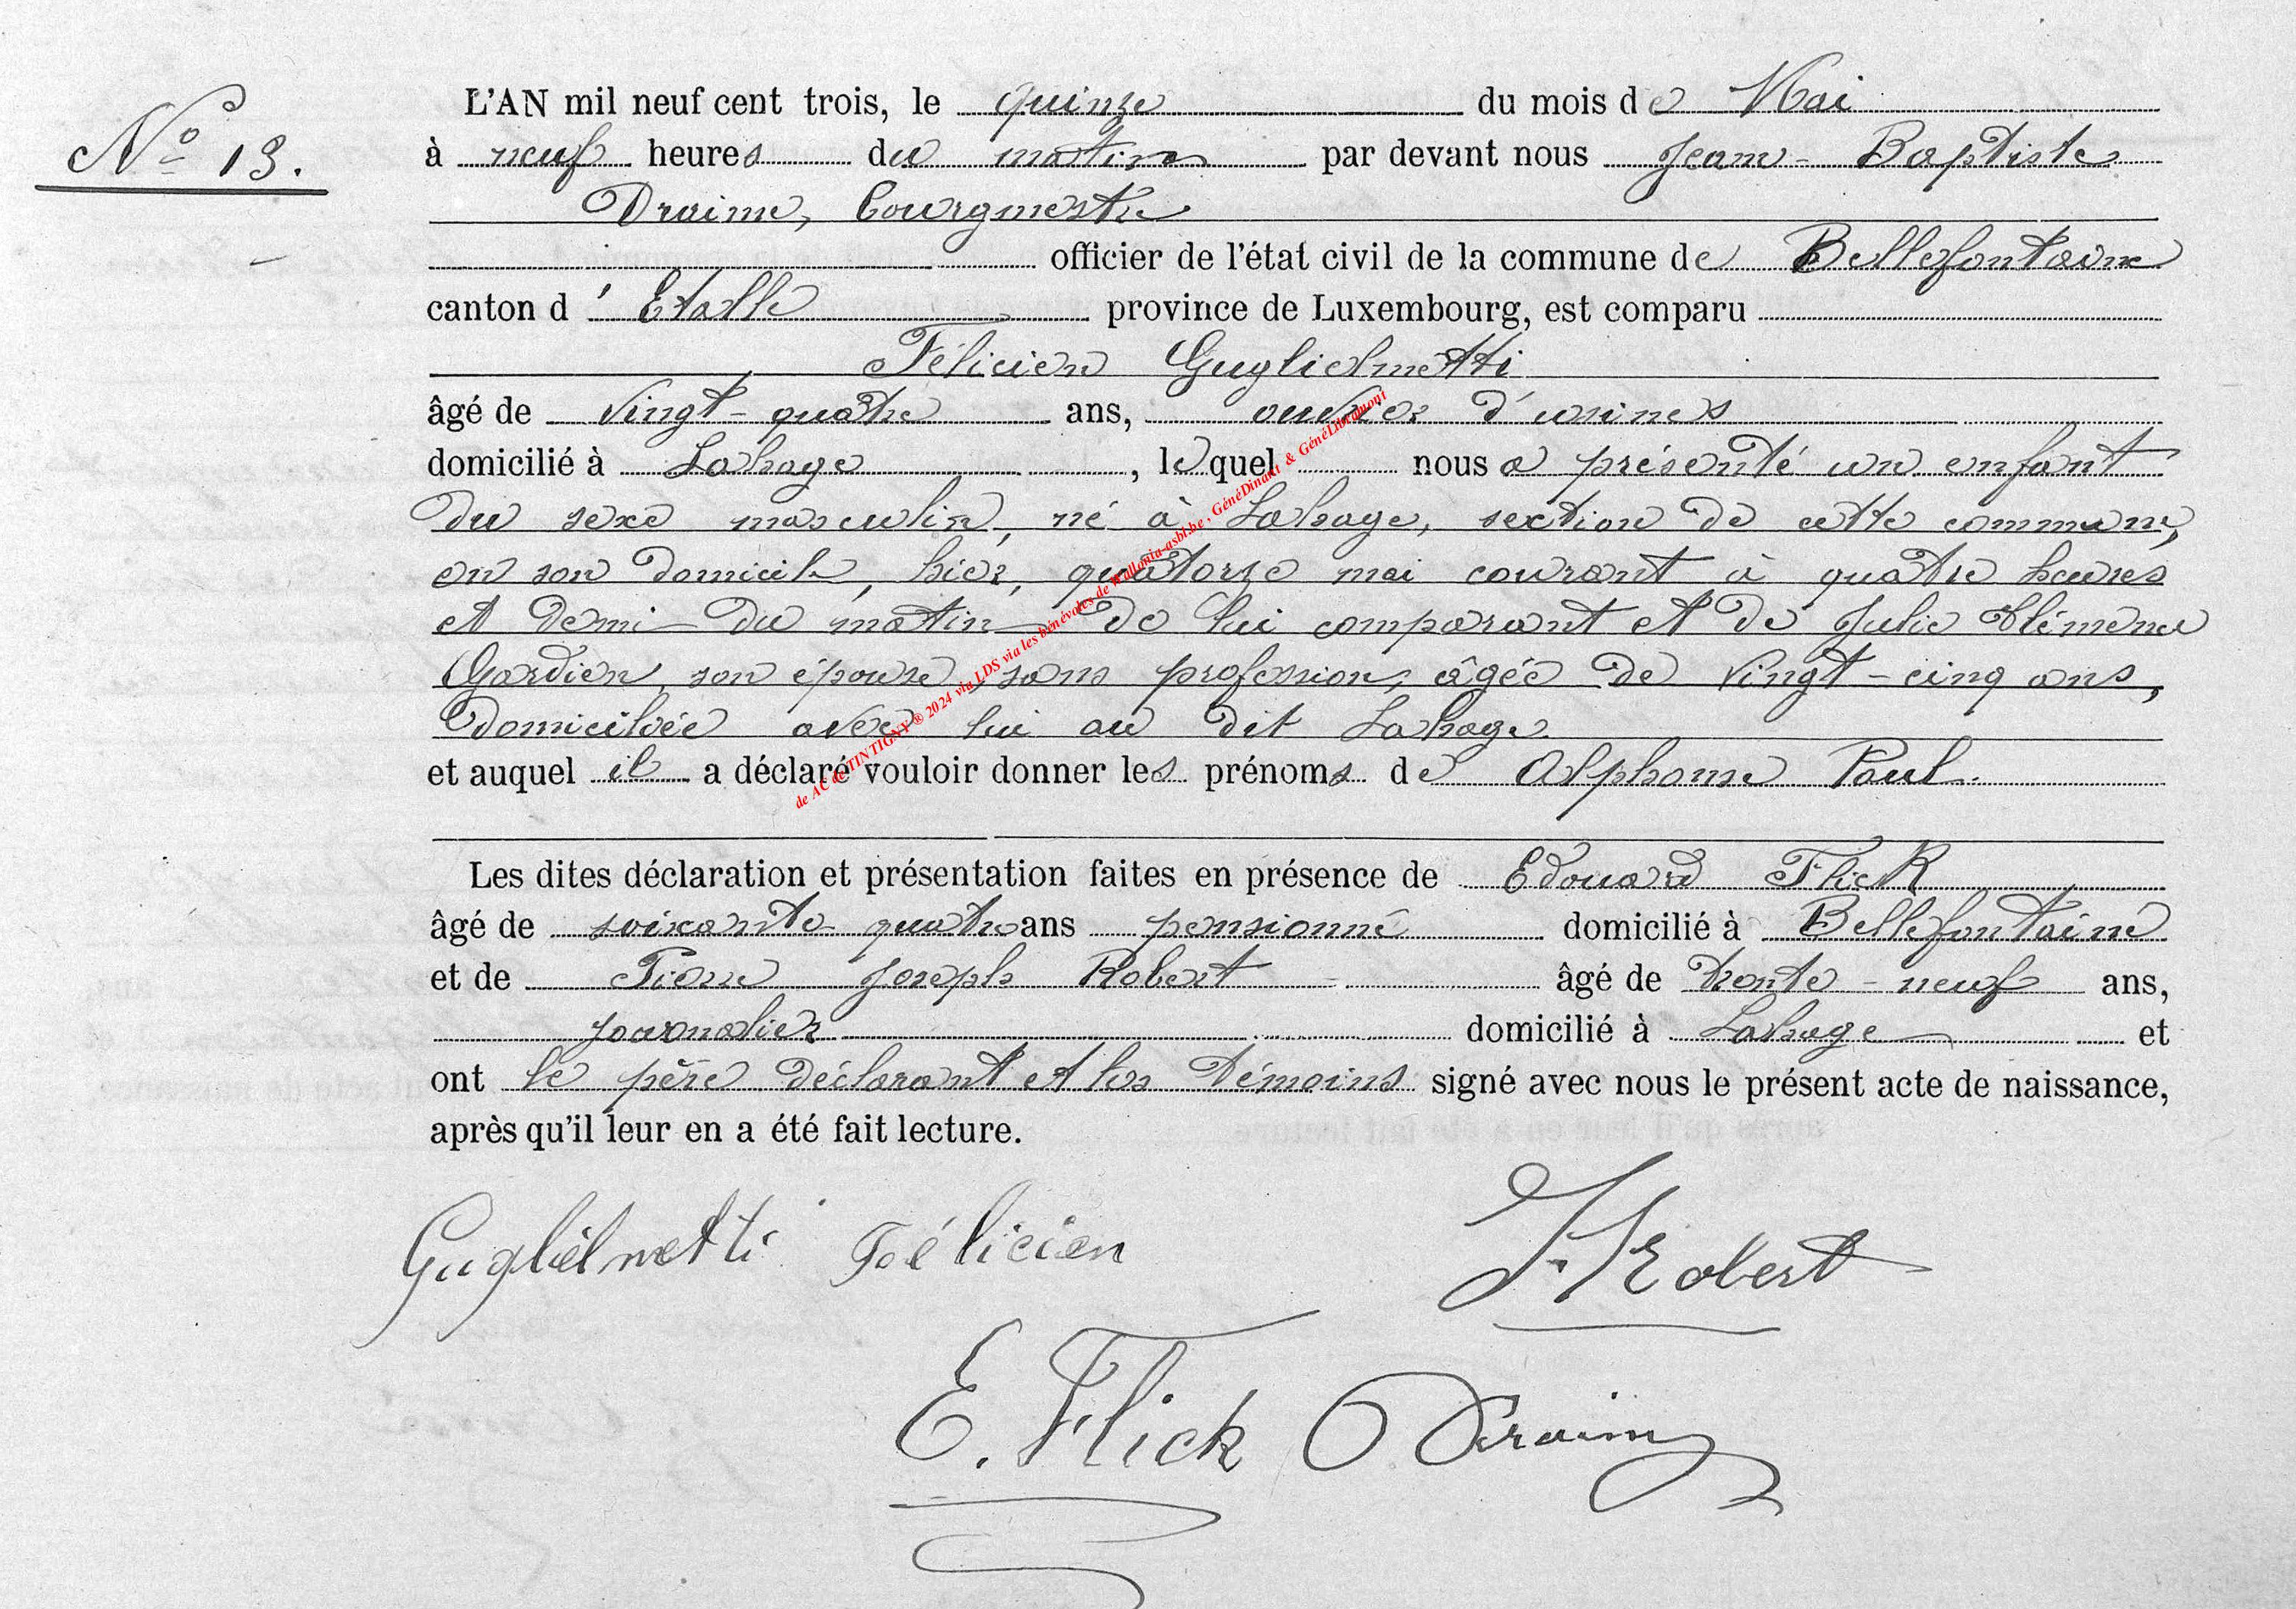 N° 13.
L'AN mil neuf cent trois, le quinze du mois de Mai
à neuf heures du matin par devant nous Jean-Baptiste
Draime, bourgmestre
officier de l'état civil de la commune de Bellefontaine
canton d'Etalle province de Luxembourg, est comparu
Félicien Guglielmetti
âgé de vingt-quatre ans, ouvrier d'usines
domicilié à Lahage, lequel nous a présenté un enfant
du sexe masculin, né à Lahage, section de cette commune,
en son domicile, hier, quatorze mai courant à quatre heures
et demi du matin de lui comparant et de Julie Clémence
Gardien, son épouse, sans profession, âgée de vingt-cinq ans,
domiciliée avec lui au dit Lahage
et auquel il a déclaré vouloir donner les prénoms de Alphonse Paul.
Les dites déclaration et présentation faites en présence de Edouard Flick
âgé de soixante quatre ans pensionné domicilié à Bellefontaine
et de Pierre Joseph Robert âgé de trente-neuf ans,
journalier domicilié à Lahage et
ont le père déclarant et les témoins signé avec nous le présent acte de naissance,
après qu'il leur en a été fait lecture.
Guglielmetti Félicien
J. Robert
E. Flick Draime
de AC de TINTIGNY ® 2024 via LDS via les bénévoles de Wallonia-asbl.be, GénéDinant & GénéLibramont